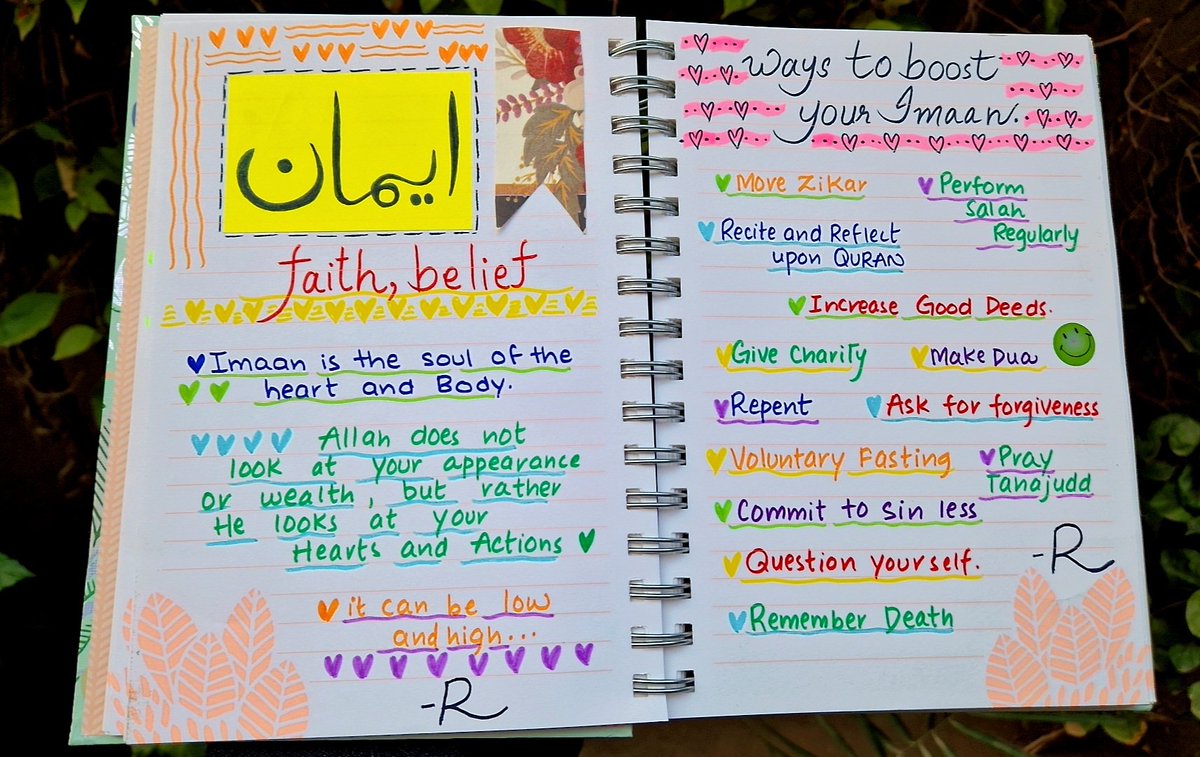 ایمان
faith, belief
Imaan is the soul of the
heart and Body.
Allah does not
look at your appearance
or wealth, but rather
He looks at your
Hearts and Actions
it can be low
and high...
-R
Ways to boost
your Imaan.
Move Zikar
Perform
Salah
Regularly
Recite and Reflect
upon QURAN
Increase Good Deeds.
Give Charity
Make Dua
Repent
Ask for forgiveness
Voluntary Fasting
Pray
Tanajudd
Commit to Sin less
Question yourself.
-R
Remember Death